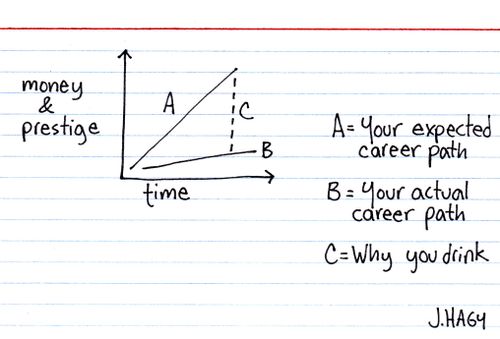 money
&
prestige
A
C
B
time
A = Your expected
career path
B = Your actual
career path
C = Why you drink
J.HAGY